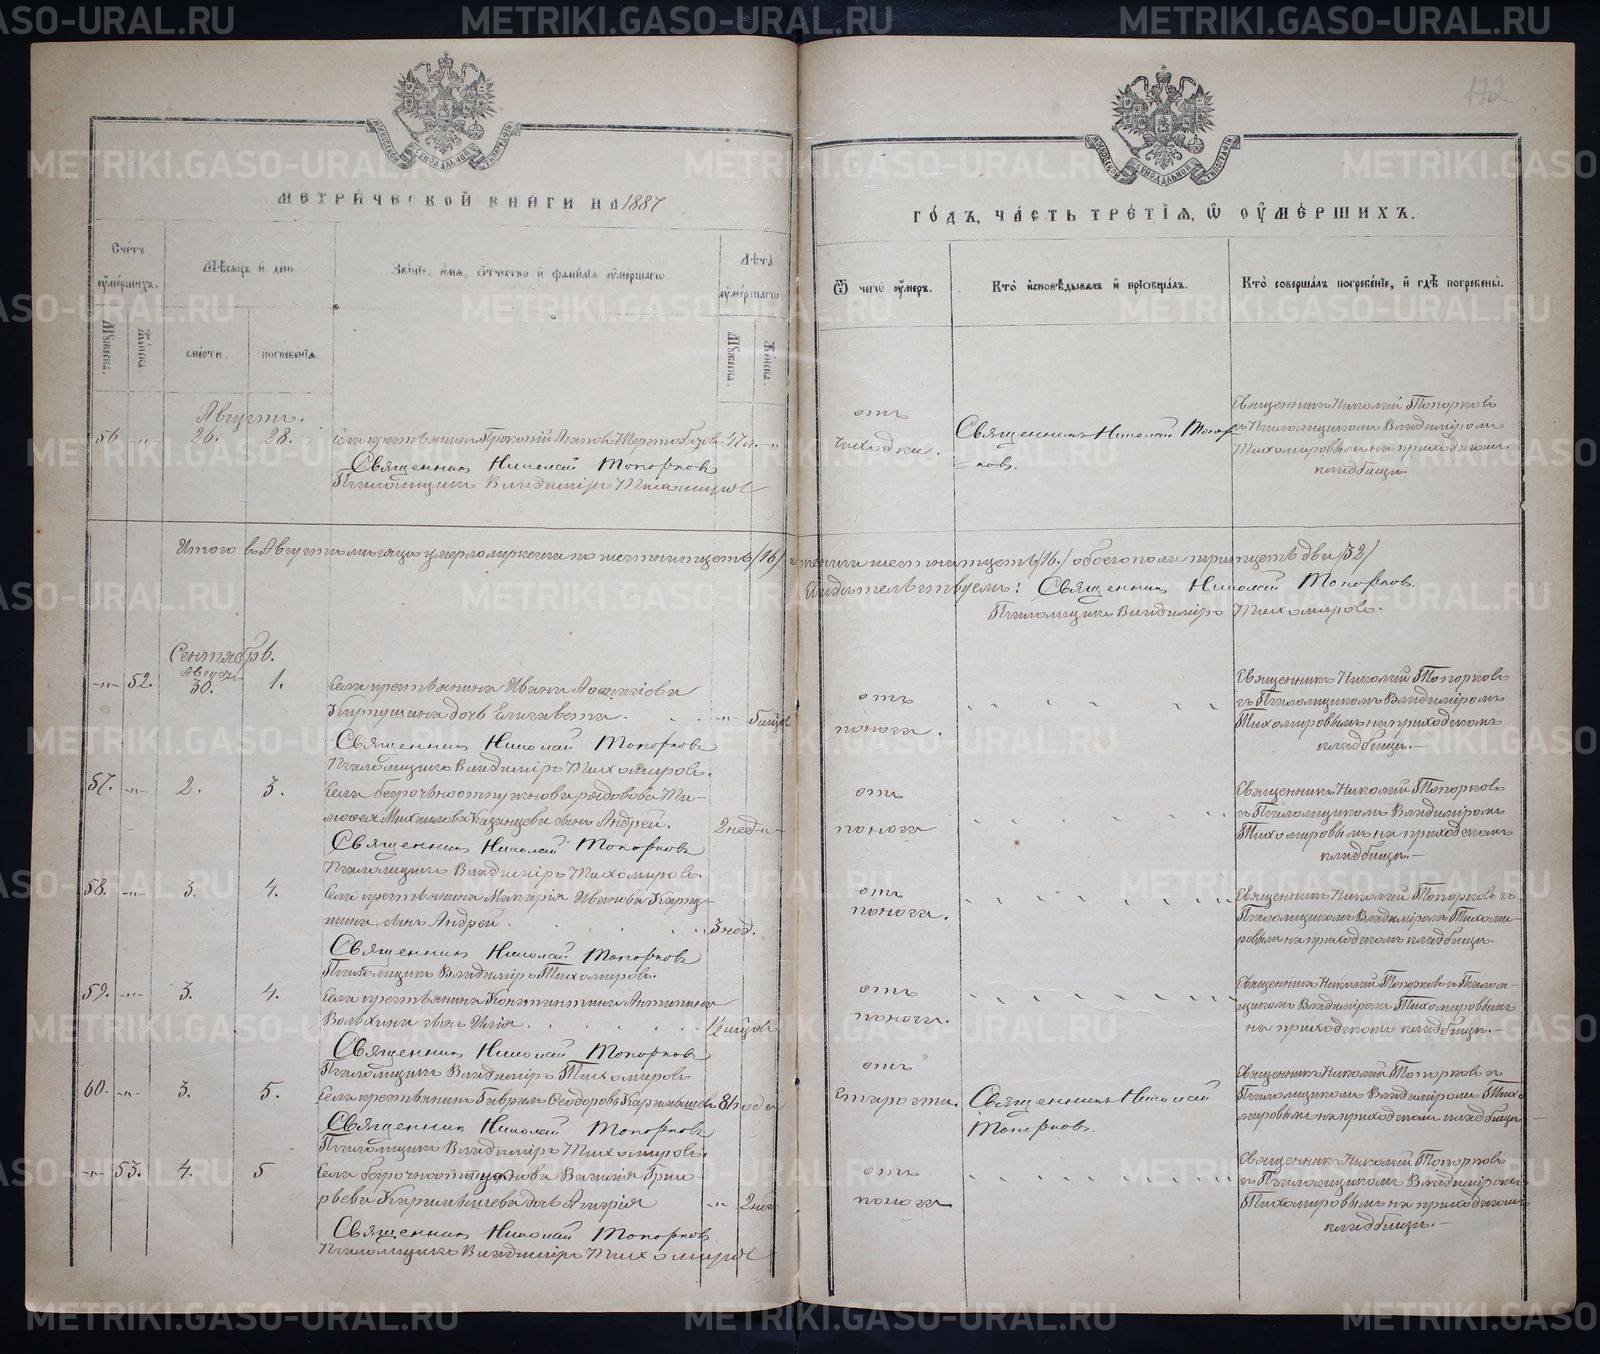 172
МЕТРИЧЕСКОЙ КНИГИ НА 1887
ГОДЪ, ЧАСТЬ ТРЕТІЯ, Ѿ ОУМЕРШИХЪ.
Счетъ оумершихъ.
Мѣсяцъ и день
Званіе, имя, отчество и фамилія оумершаго.
Лѣта оумершаго
Мужеска.
Женска.
смерти.
погребенія.
Мужеска.
Женска.
Ѿ чего оумеръ.
Кто исповѣдывалъ и пріобщалъ.
Кто совершалъ погребеніе, и гдѣ погребены.
Августъ.
56 -"- 26. 28.
Села крестьянинъ Прокопій
Священникъ Николай Топорковъ
Псаломщикъ Владиміръ Тихомировъ
отъ чахотки.
Священникъ Николай Топорковъ.
Священникъ Николай Топорковъ
съ Псаломщикомъ Владиміромъ
Тихомировымъ на приходскомъ
кладбищѣ.
Итого въ Августѣ мѣсяцѣ умерло мужеска по шестнатцеть /16/ женска шестнатцеть /16./ обоего пола тритцеть два /32/
Свидѣтельствуемъ: Священникъ Николай Топорковъ.
Псаломщикъ Владиміръ Тихомировъ.
Сентябрь.
Август
-"- 52. 30. 1.
Села крестьянина Ивана
дочь Елизавета. -"-
Священникъ Николай Топорковъ
Псаломщикъ Владиміръ Тихомировъ.
отъ
поноса.
Священникъ Николай Топорковъ
съ Псаломщикомъ Владиміромъ
Тихомировымъ на приходскомъ
кладбищѣ.-
57. -"- 2. 3.
Села безсрочноотпускнова рядовова Ти-
мофея Михаилова Казанцева сынъ Андрей. 2 нед. -"-
Священникъ Николай Топорковъ
Псаломщикъ Владиміръ Тихомировъ.
отъ
поноса
Священникъ Николай Топорковъ
съ Псаломщикомъ Владиміромъ
Тихомировымъ на приходскомъ
кладбищѣ.-
58. -"- 3. 4.
Села крестьянина Макарія Иванова
сынъ Андрей. 3 нед.
Священникъ Николай Топорковъ
Псаломщикъ Владиміръ Тихомировъ.
отъ
поноса.
Священникъ Николай Топорковъ съ
Псаломщикомъ Владиміромъ Тихоми-
ровымъ на приходскомъ кладбищѣ.
59. -"- 3. 4.
Села крестьянина Константина Антипина
сынъ Илія.
Священникъ Николай Топорковъ
Псаломщикъ Владиміръ Тихомировъ
отъ
поноса.
Священникъ Николай Топорковъ съ Псалом-
щикомъ Владиміромъ Тихомировымъ
на приходскомъ кладбищѣ.-
60. -"- 3. 5.
Села крестьянинъ Гавріилъ Ѳеодоровъ 81
Священникъ Николай Топорковъ
Псаломщикъ Владиміръ Тихомировъ.
отъ
старости.
Священникъ Николай
Топорковъ.
Священникъ Николай Топорковъ съ
Псаломщикомъ Владиміромъ Тихо-
мировымъ на приходскомъ кладбищѣ
-"- 53. 4. 5
Села безсрочноотпускнова Василія Григо-
рьева дочь -"- 2 нед
Священникъ Николай Топорковъ
Псаломщикъ Владиміръ Тихомировъ
отъ
поноса
Священникъ Николай Топорковъ
съ Псаломщикомъ Владиміромъ
Тихомировымъ на приходскомъ
кладбищѣ.-
METRIKI.GASO-URAL.RU